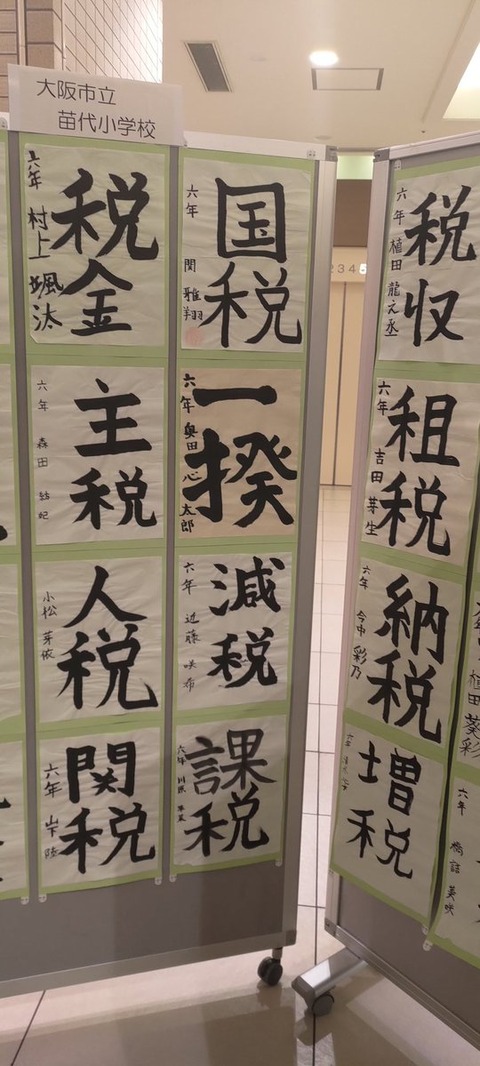 大阪市立
苗代小学校
税金
六年 村上 颯汰
国税
六年 関 雅翔
税収
六年 植田 龍之丞
主税
六年 森田 結妃
一揆
六年 奥田 心太郎
租税
六年 吉田 芽生
人税
小松 芽依
減税
六年 近藤 咲希
納税
六年 今中 彩乃
植田 葵彩
関税
六年 山下 陸
課税
六年
増税
六年
六年 橋詰 美咲
234